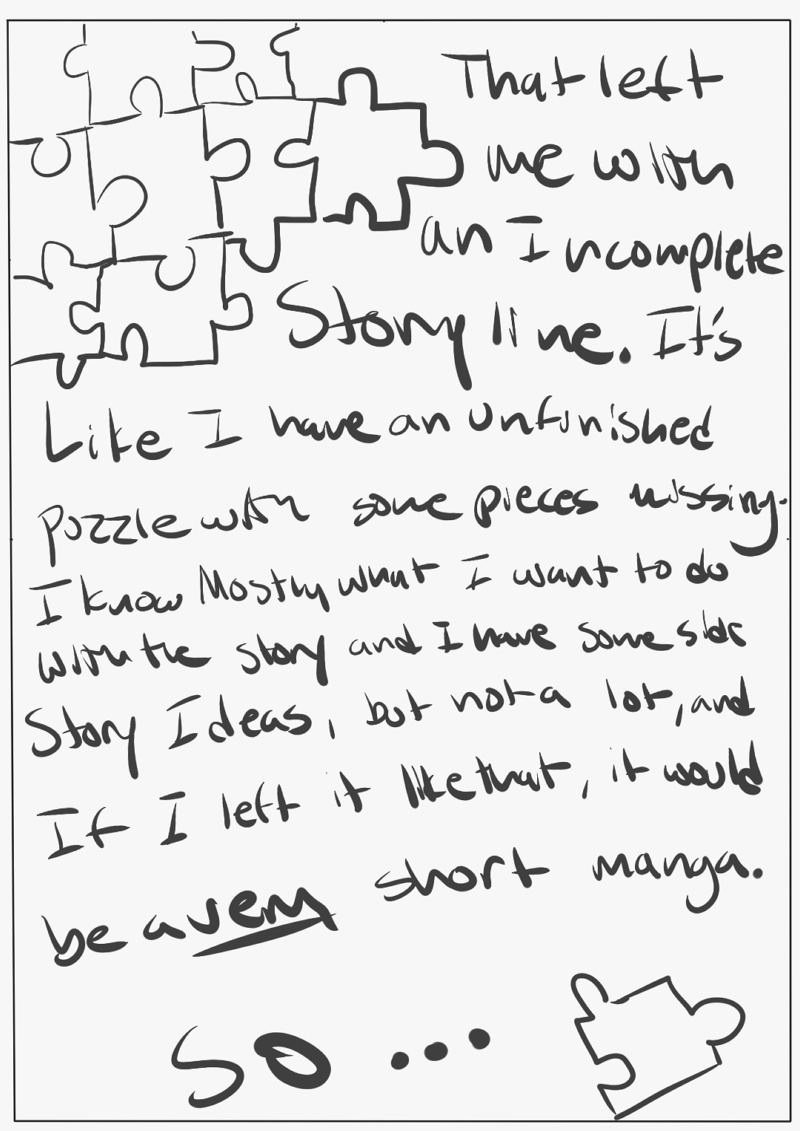 That left
me with
an Incomplete
Story line. It's
Like I have an unfinished
puzzle with some pieces missing.
I know Mostly what I want to do
with the story and I have some side
Story Ideas, but not a lot, and
If I left it like that, it would
be a very short manga.
So...